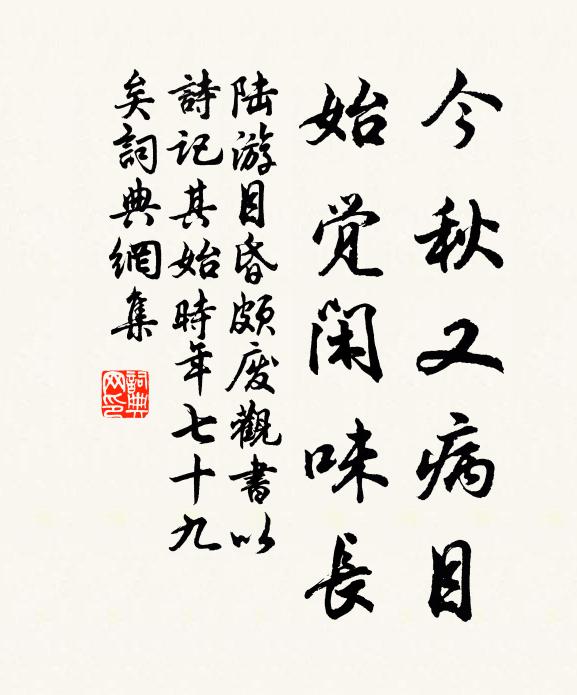 今秋又病目
始觉閑味長
陆游目昏頗废觀書以
詩記其始時年七十九
矣詞典網集
詞典
网印